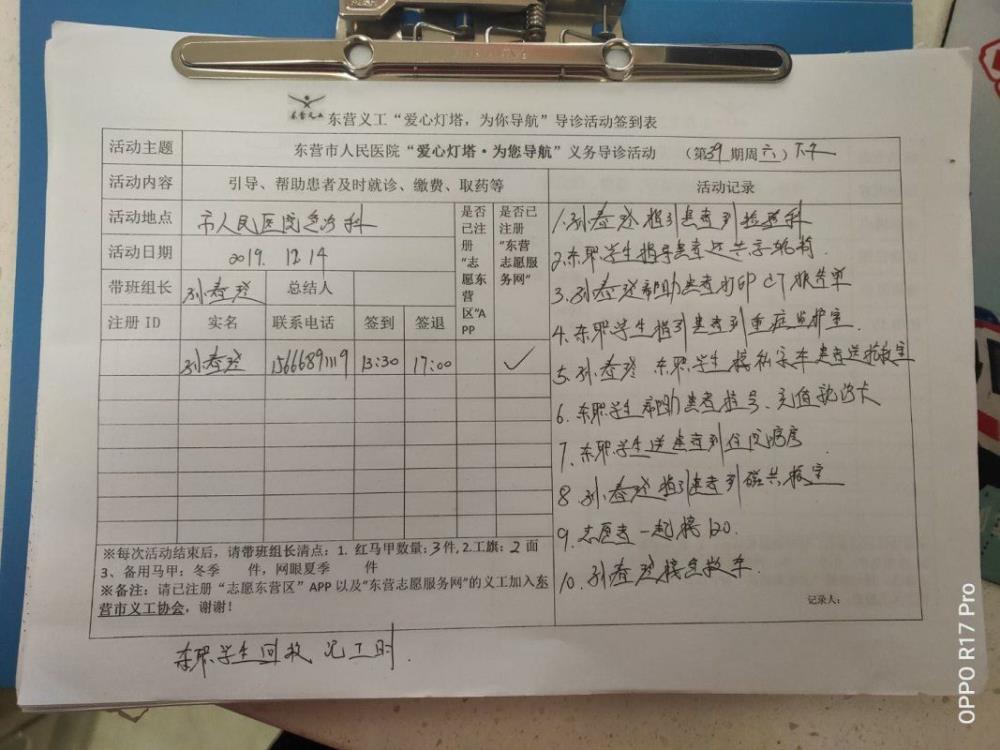 东营义工
东营义工“爱心灯塔，为你导航”导诊活动签到表
活动主题 东营市人民医院“爱心灯塔·为您导航”义务导诊活动 （第39期周六）下午
活动内容 引导、帮助患者及时就诊、缴费、取药等 活动记录
活动地点 市人民医院急诊科
是否已注册“志愿东营区”APP
是否已注册“东营志愿服务网”
活动日期 2019. 12.14
带班组长 孙春玲 总结人
注册 ID 实名 联系电话 签到 签退
孙春玲 15666891119 13:30 17:00 ✓
1.孙春玲指引患者到检验科
2.东职学生指导患者还共享轮椅
3.孙春玲帮助患者打印CT报告单
4.东职学生指引患者到重症监护室.
5.孙春玲 东职学生接私家车患者送抢救室
6.东职学生帮助患者挂号、充值就诊卡
7.东职学生送患者到住院病房
8.孙春玲指引患者到磁共振室
9.志愿者一起接120.
10.孙春玲接急救车.
记录人：
※每次活动结束后，请带班组长清点：1. 红马甲数量：3件，2.工旗：2 面
3、备用马甲：冬季 件，网眼夏季 件
※备注：请已注册“志愿东营区”APP 以及“东营志愿服务网”的义工加入东
营市义工协会，谢谢！
东职学生回校记工时.
OPPO R17 Pro